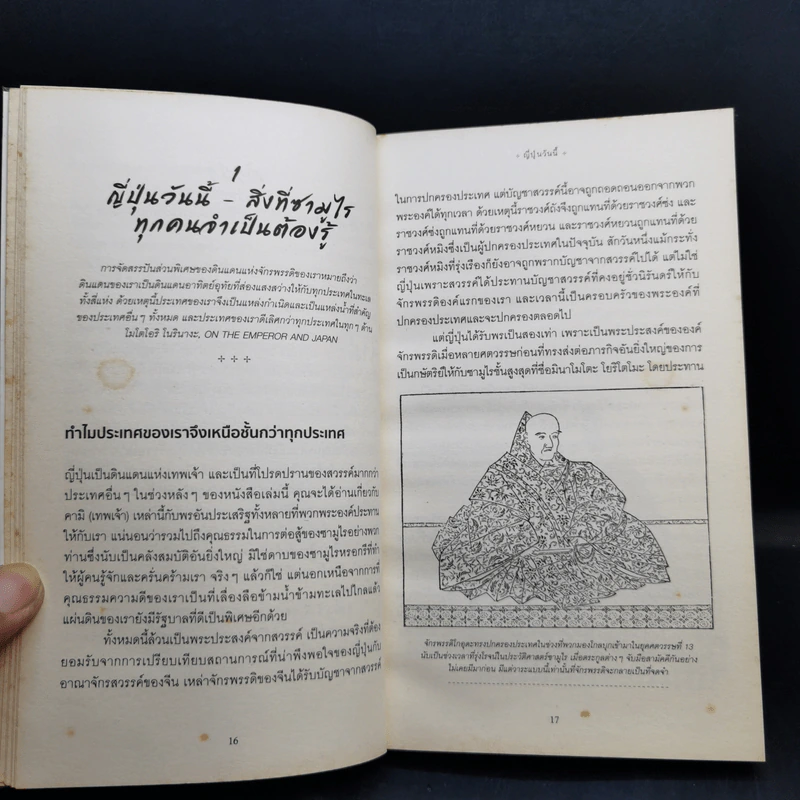 1
ญี่ปุ่นวันนี้ – สิ่งที่ซามูไร
ทุกคนจำเป็นต้องรู้
การจัดสรรปันส่วนพิเศษของดินแดนแห่งจักรพรรดิของเราหมายถึงว่า
ดินแดนของเราเป็นดินแดนอาทิตย์อุทัยที่ส่องแสงสว่างให้กับทุกประเทศในทะเล
ทั้งสี่แห่ง ด้วยเหตุนี้ประเทศของเราจึงเป็นแหล่งกำเนิดและเป็นแหล่งน้ำที่สำคัญ
ของประเทศอื่นๆ ทั้งหมด และประเทศของเราดีเลิศกว่าทุกประเทศในทุกๆ ด้าน
โมโตโอริ โนรินางะ, ON THE EMPEROR AND JAPAN
ทำไมประเทศของเราจึงเหนือชั้นกว่าทุกประเทศ
ญี่ปุ่นเป็นดินแดนแห่งเทพเจ้า และเป็นที่โปรดปรานของสวรรค์มากกว่า
ประเทศอื่นๆ ในช่วงหลังๆ ของหนังสือเล่มนี้ คุณจะได้อ่านเกี่ยวกับ
คามิ (เทพเจ้า) เหล่านี้กับพรอันประเสริฐทั้งหลายที่พวกพระองค์ประทาน
ให้กับเรา แน่นอนว่ารวมไปถึงคุณธรรมในการต่อสู้ของซามูไรอย่างพวก
ท่านซึ่งนับเป็นคลังสมบัติอันยิ่งใหญ่ มิใช่ดาบของซามูไรหรอกรึที่ทำ
ให้ผู้คนรู้จักและครั่นคร้ามเรา จริงๆ แล้วก็ใช่ แต่นอกเหนือจากการที่
คุณธรรมความดีของเราเป็นที่เลื่องลือข้ามน้ำข้ามทะเลไปไกลแล้ว
แผ่นดินของเรายังมีรัฐบาลที่ดีเป็นพิเศษอีกด้วย
ทั้งหมดนี้ล้วนเป็นพระประสงค์จากสวรรค์ เป็นความจริงที่ต้อง
ยอมรับจากการเปรียบเทียบสถานการณ์ที่น่าพึงพอใจของญี่ปุ่นกับ
อาณาจักรสวรรค์ของจีน เหล่าจักรพรรดิของจีนได้รับบัญชาจากสวรรค์
16
ญี่ปุ่นวันนี้
ในการปกครองประเทศ แต่บัญชาสวรรค์นี้อาจถูกถอดถอนออกจากพวก
พระองค์ได้ทุกเวลา ด้วยเหตุนี้ราชวงศ์ถังจึงถูกแทนที่ด้วยราชวงศ์ซ่ง และ
ราชวงศ์ซ่งถูกแทนที่ด้วยราชวงศ์หยวน และราชวงศ์หยวนถูกแทนที่ด้วย
ราชวงศ์หมิงซึ่งเป็นผู้ปกครองประเทศในปัจจุบัน สักวันหนึ่งแม้กระทั่ง
ราชวงศ์หมิงที่รุ่งเรืองก็ยังอาจถูกพรากบัญชาจากสวรรค์ไปได้ แต่ไม่ใช่
ญี่ปุ่นเพราะสวรรค์ได้ประทานบัญชาสวรรค์ที่คงอยู่ชั่วนิรันดร์ให้กับ
จักรพรรดิองค์แรกของเรา และเวลานี้เป็นครอบครัวของพระองค์ที่
ปกครองประเทศและจะปกครองตลอดไป
แต่ญี่ปุ่นได้รับพรเป็นสองเท่า เพราะเป็นพระประสงค์ขององค์
จักรพรรดิเมื่อหลายศตวรรษก่อนที่ทรงส่งต่อภารกิจอันยิ่งใหญ่ของการ
เป็นกษัตริย์ให้กับซามูไรชั้นสูงสุดที่ชื่อมินาโมโตะ โยริโตโมะ โดยประทาน
จักรพรรดิโกอุดะทรงปกครองประเทศในช่วงที่พวกมองโกลบุกเข้ามาในยุคศตวรรษที่ 13
นับเป็นช่วงเวลาที่รุ่งโรจน์ในประวัติศาสตร์ซามูไร เมื่อตระกูลต่างๆ จับมือสามัคคีกันอย่าง
ไม่เคยมีมาก่อน มีแต่วาระแบบนี้เท่านั้นที่จักรพรรดิจะกลายเป็นที่จดจำ
17